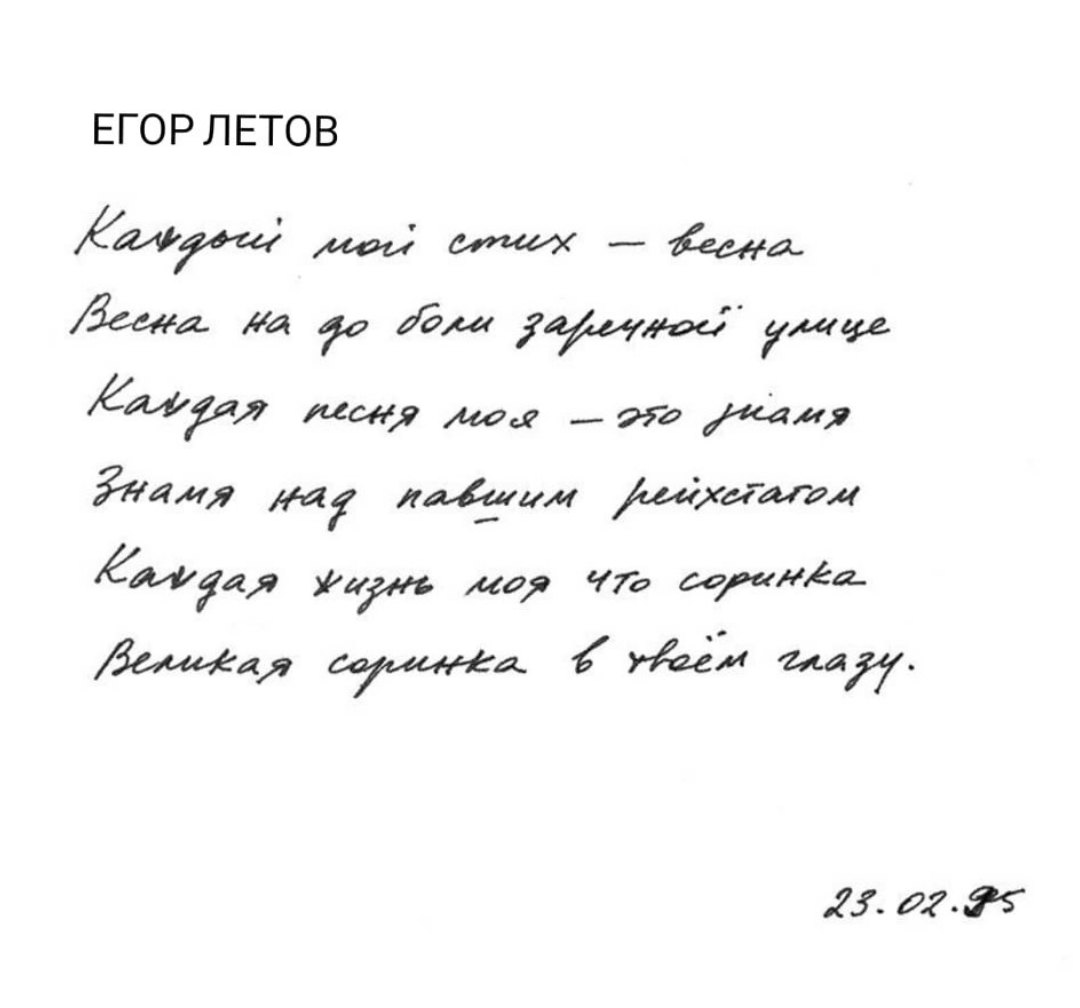 ЕГОР ЛЕТОВ
Каждый мой стих – весна
Весна на до боли заречной улице
Каждая песня моя – это знамя
Знамя над павшим рейхстагом
Каждая жизнь моя что соринка
Великая соринка в твоём глазу.
23.02.95